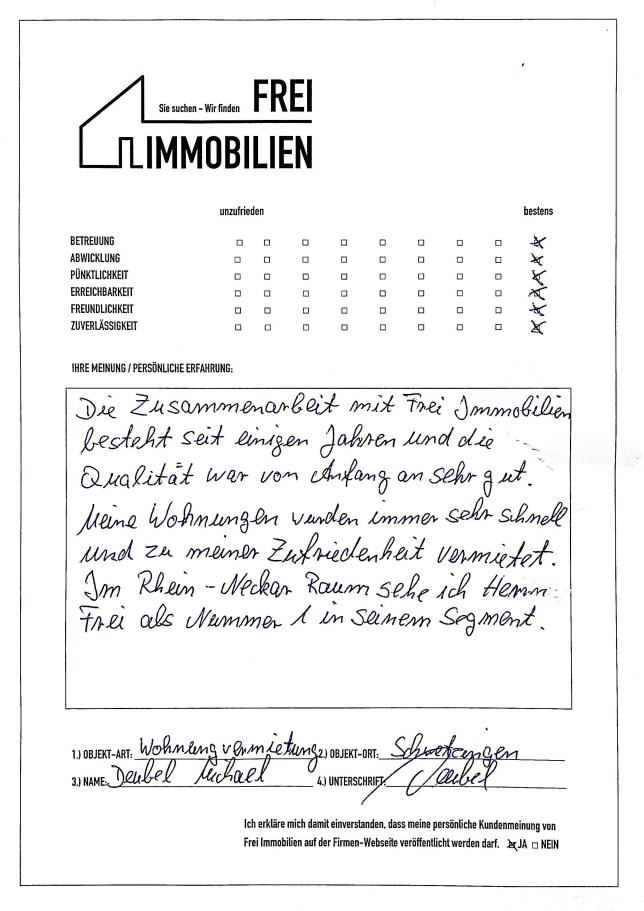 Sie suchen - Wir finden FREI
IMMOBILIEN
unzufrieden bestens
BETREUUNG
ABWICKLUNG
PÜNKTLICHKEIT
ERREICHBARKEIT
FREUNDLICHKEIT
ZUVERLÄSSIGKEIT
IHRE MEINUNG / PERSÖNLICHE ERFAHRUNG:
Die Zusammenarbeit mit Frei Immobilien
besteht seit einigen Jahren und die
Qualität war von Anfang an sehr gut.
Meine Wohnungen wurden immer sehr schnell
und zu meiner Zufriedenheit vermietet.
Im Rhein-Neckar Raum sehe ich Herrn
Frei als Nummer 1 in seinem Segment.
1.) OBJEKT-ART: Wohnungvermietung 2.) OBJEKT-ORT: Schwetzingen
3.) NAME: Deubel Michael 4.) UNTERSCHRIFT: Deubel
Ich erkläre mich damit einverstanden, dass meine persönliche Kundenmeinung von
Frei Immobilien auf der Firmen-Webseite veröffentlicht werden darf. JA NEIN